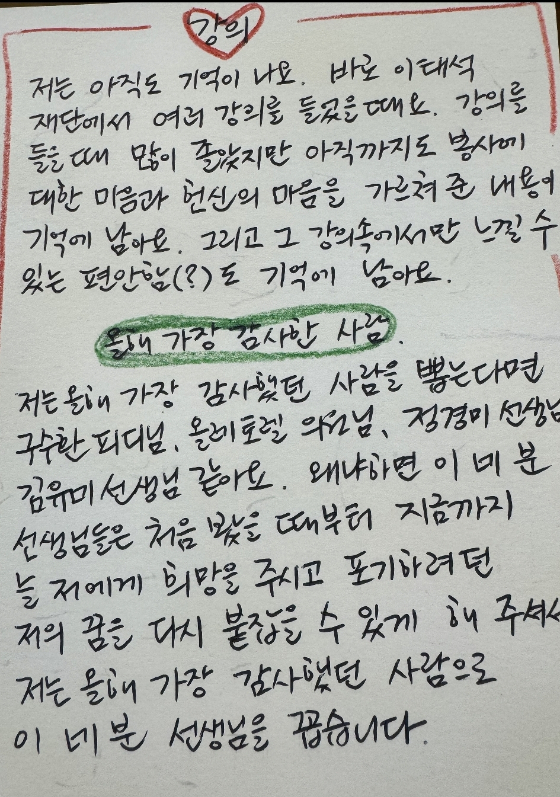 강의
저는 아직도 기억이 나요. 바로 이태석
재단에서 여러 강의를 들었을 때요. 강의를
들을 때 많이 졸았지만 아직까지도 봉사에
대한 마음과 헌신의 마음을 가르쳐 준 내용이
기억에 남아요. 그리고 그 강의속에서만 느낄 수
있는 편안함(?)도 기억에 남아요.
올해 가장 감사한 사람.
저는 올해 가장 감사했던 사람을 뽑는다면
구수환 피디님, 올레토렐 의원님, 정경미 선생님
김유미 선생님 같아요. 왜냐하면 이 네 분
선생님들은 처음 봤을 때부터 지금까지
늘 저에게 희망을 주시고 포기하려던
저의 꿈을 다시 붙잡을 수 있게 해 주셔서
저는 올해 가장 감사했던 사람으로
이 네 분 선생님을 꼽습니다.